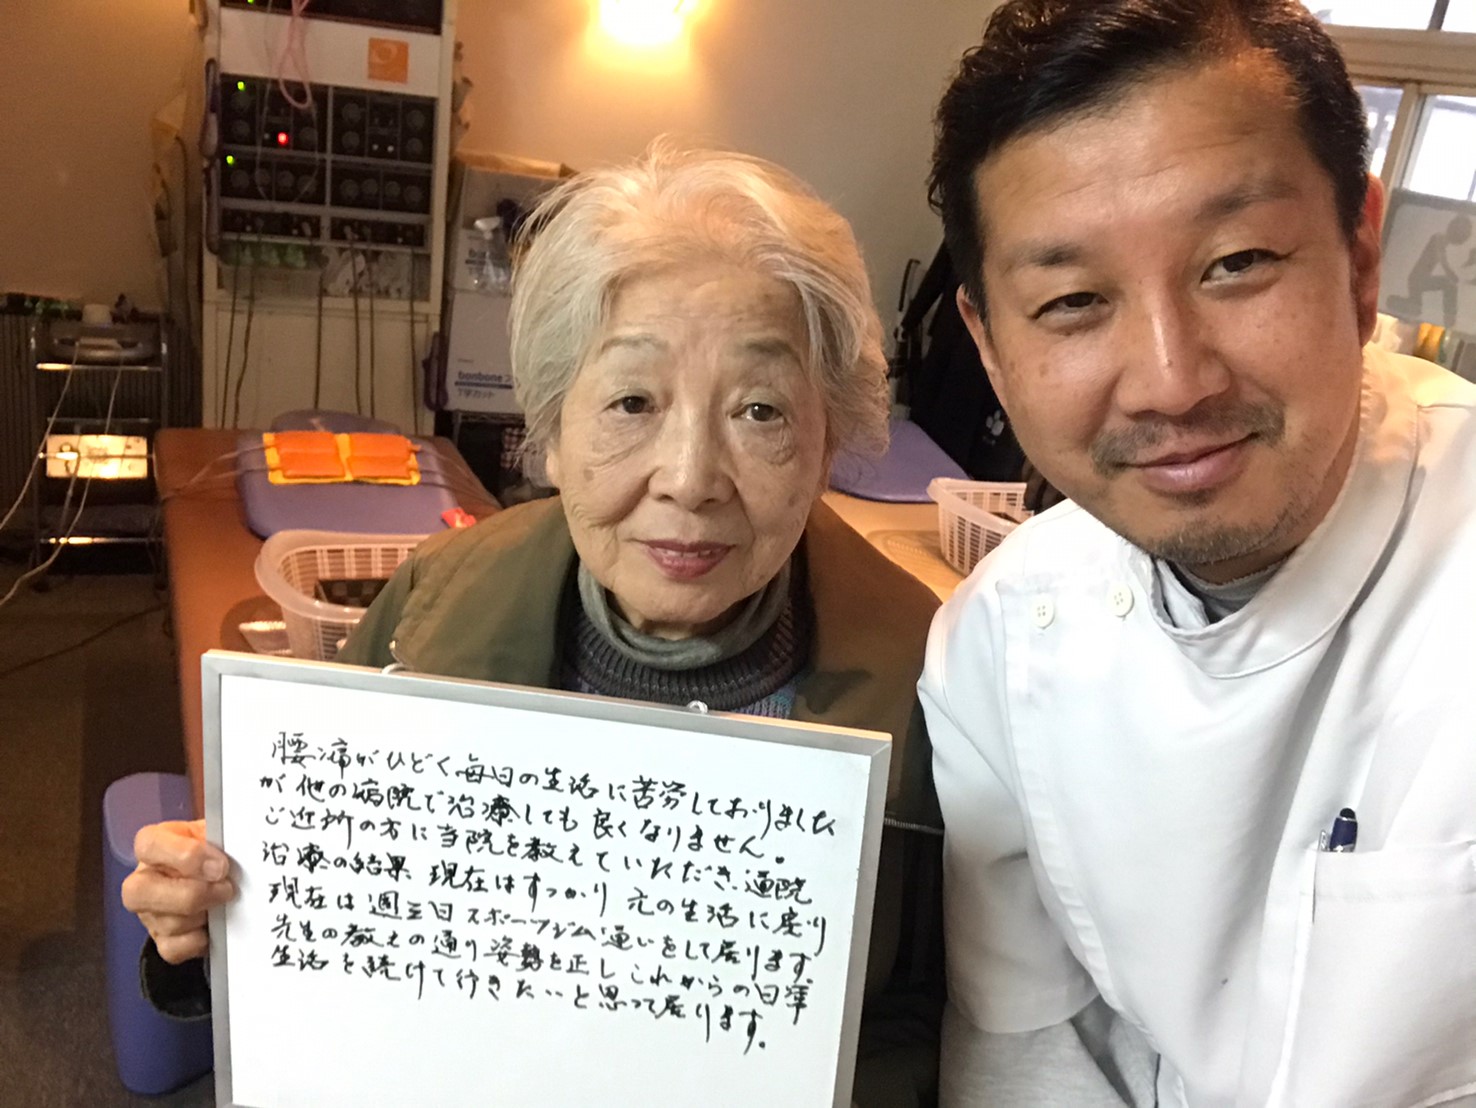 bonbone
T字カット
腰痛がひどく毎日の生活に苦労しておりました
が他の病院で治療しても良くなりません。
ご近所の方に当院を教えていただき通院
治療の結果 現在はすっかり 元の生活に戻り
現在は週三日スポーツジム通いをして居ります。
先生の教えの通り姿勢を正しこれからの日常
生活を続けて行きたいと思って居ります。